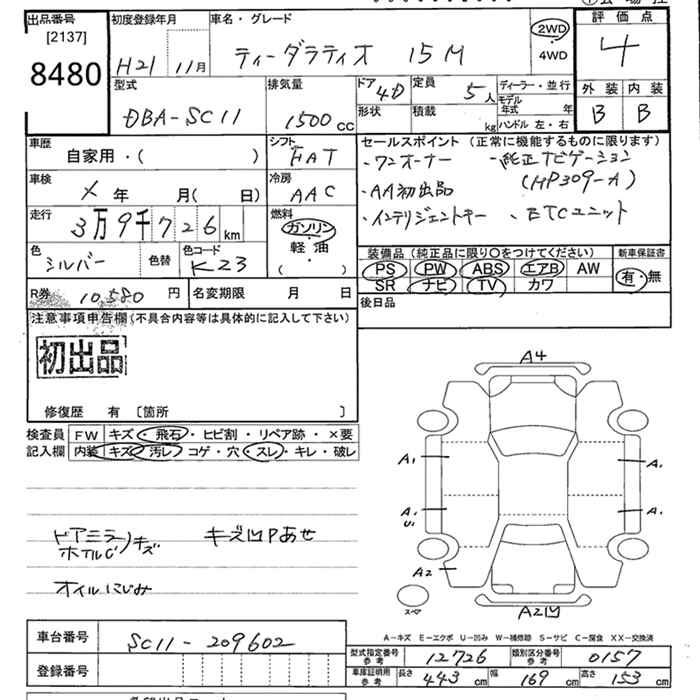 出品番号 初度登録年月 車名・グレード 評価点
[2137]
8480 H21 11月 ティーダラティオ 15M 2WD 4WD 4
型式 排気量 ドア 4D 定員 5人 ディーラー・並行 外装 内装
DBA-SC11 1500cc 形状 積載 kg モデル年式 年 B B
ハンドル 左・右
車歴 自家用・( ) シフト FAT セールスポイント (正常に機能するものに限ります)
・ワンオーナー ・純正ナビゲーション
車検 X 年 月(日) 冷房 AAC ・AA初出品 (HP309-A)
走行 3万9千726km 燃料 ガソリン 軽油 ( ) ・インテリジェントキー ・ETCユニット
色 シルバー 色替 色コード K23 装備品 (純正品に限り○をつけてください) 新車保証書
PS PW ABS エアB AW 有・無
SR ナビ TV カワ
R券 10,580円 名変期限 月 日 後日品
注意事項申告欄(不具合内容等は具体的に記入して下さい)
初出品
修復歴 有 〔箇所 〕
検査員 FW キズ・飛石・ヒビ割・リペア跡・×要
記入欄 内装 キズ・汚レ・コゲ・穴・スレ・キレ・破レ
A4
A1 A1
A1 U1 A1
A2
スペア A2凹
ドアミラー ホイルC キズ キズ凹Pあせ
オイルにじみ
A-キズ E-エクボ U-凹み W-補修跡 S-サビ C-腐食 XX-交換済
車台番号 SC11-209602
登録番号
型式指定番号 参考 12726 類別区分番号 参考 0157
車庫証明用 参考 長さ 443cm 幅 169cm 高さ 153cm